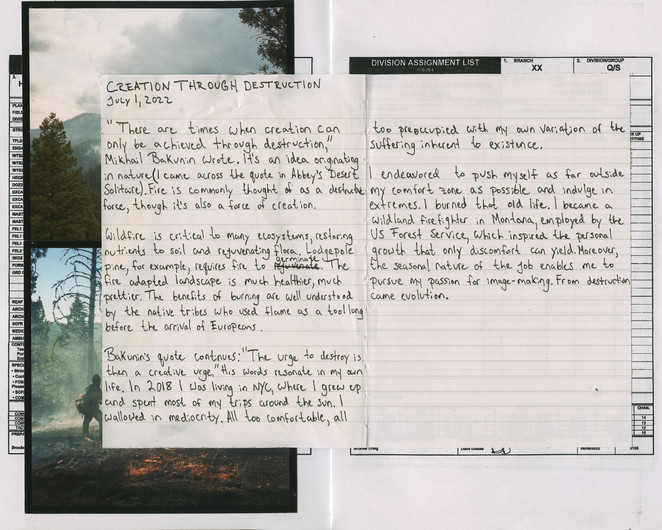 DIVISION ASSIGNMENT LIST
1. BRANCH
XX
2. DIVISION/GROUP
Q/S
CREATION THROUGH DESTRUCTION
July 1, 2022
"There are times when creation can
only be achieved through destruction,"
Mikhail Bakunin wrote. It's an idea originating
in nature (I came across the quote in Abbey's Desert
Solitaire). Fire is commonly thought of as a destructive
force, though it's also a force of creation.
Wildfire is critical to many ecosystems, restoring
nutrients to soil and rejuvenating flora. Lodgepole
pine, for example, requires fire to germinate. The
fire adapted landscape is much healthier, much
prettier. The benefits of burning are well understood
by the native tribes who used flame as a tool long
before the arrival of Europeans.
Bakunin's quote continues: "The urge to destroy is
then a creative urge." His words resonate in my own
life. In 2018 I was living in NYC, where I grew up
and spent most of my trips around the sun. I
wallowed in mediocrity. All too comfortable, all
too preoccupied with my own variation of the
suffering inherent to existence.
I endeavored to push myself as far outside
my comfort zone as possible and indulge in
extremes. I burned that old life. I became a
wildland firefighter in Montana, employed by the
US Forest Service, which inspired the personal
growth that only discomfort can yield. Moreover,
the seasonal nature of the job enables me to
pursue my passion for image-making. From destruction
came evolution.